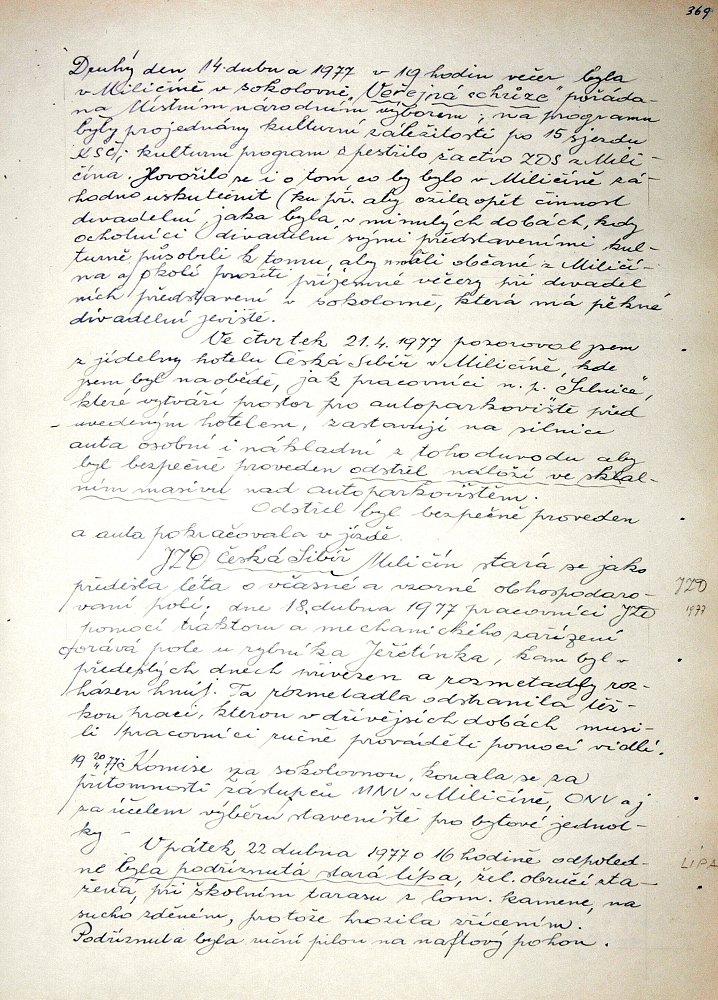 369
Druhý den 14. dubna 1977 v 19 hodin večer byla
v Miličíně v sokolovně, "Veřejná schůze" pořáda-
na Místním národním výborem, na programu
byly projednány kulturní záležitosti po 15 sjezdu
KSČ, kulturní program zpestřilo žactvo ZDŠ z Mili-
čína. Hovořilo se i o tom co by bylo v Miličíně zá-
hodno uskutečnit (ku př. aby ožila opět činnost
divadelní, jaká byla, v minulých dobách, kdy
ochotníci divadelní svými představeními kul-
turně působili k tomu, aby měli občané z Miličí-
na a okolí prožíti příjemné večery při divadel
ních představení v sokolovně, která má pěkné
divadelní jeviště.
Ve čtvrtek 21.4. 1977 pozoroval jsem
z jídelny hotelu Česká Sibiř v Miličíně, kde
jsem byl na obědě, jak pracovníci n. p. "Silnice",
které vytváří prostor pro autoparkoviště před
uvedeným hotelem, zastavují na silnici
auta osobní i nákladní z toho duvodu aby
byl bezpečně proveden odstřel náloží ve skal-
ním masivu nad autoparkovištěm.
Odstřel byl bezpečně proveden
a auta pokračovala v jízdě.
JZD Česká Sibiř Miličín stará se jako
předešlá léta o včasné a vzorné obhospodaro-
vaní polí, dne 18. dubna 1977 pracovníci JZD
JZD
1977
pomocí traktoru a mechanického zařízení
orává pole u rybníka Jerčtínka, kam byl v
předešlých dnech přivezen a rozmetadly roz-
házen hnůj. Ta rozmetadla odstranila těž-
kou práci, kterou v dřívějších dobách musi-
li pracovníci ručně prováděti pomocí vidlí.
19 20/4 77: Komise za sokolovnou, konala se za
přítomnosti zástupců MNV v Miličíně, ONV aj
za účelem výběru staveniště pro bytové jednot-
ky -
V pátek 22 dubna 1977 o 16 hodině odpoled-
ně byla podříznutá stará lípa, žel. obručí sta-
LÍPA
žená, při školním tarasu z lom. kamene, na
sucho zděném, protože hrozila zřícením.
Podříznuta byla ruční pilou na naftový pohon.